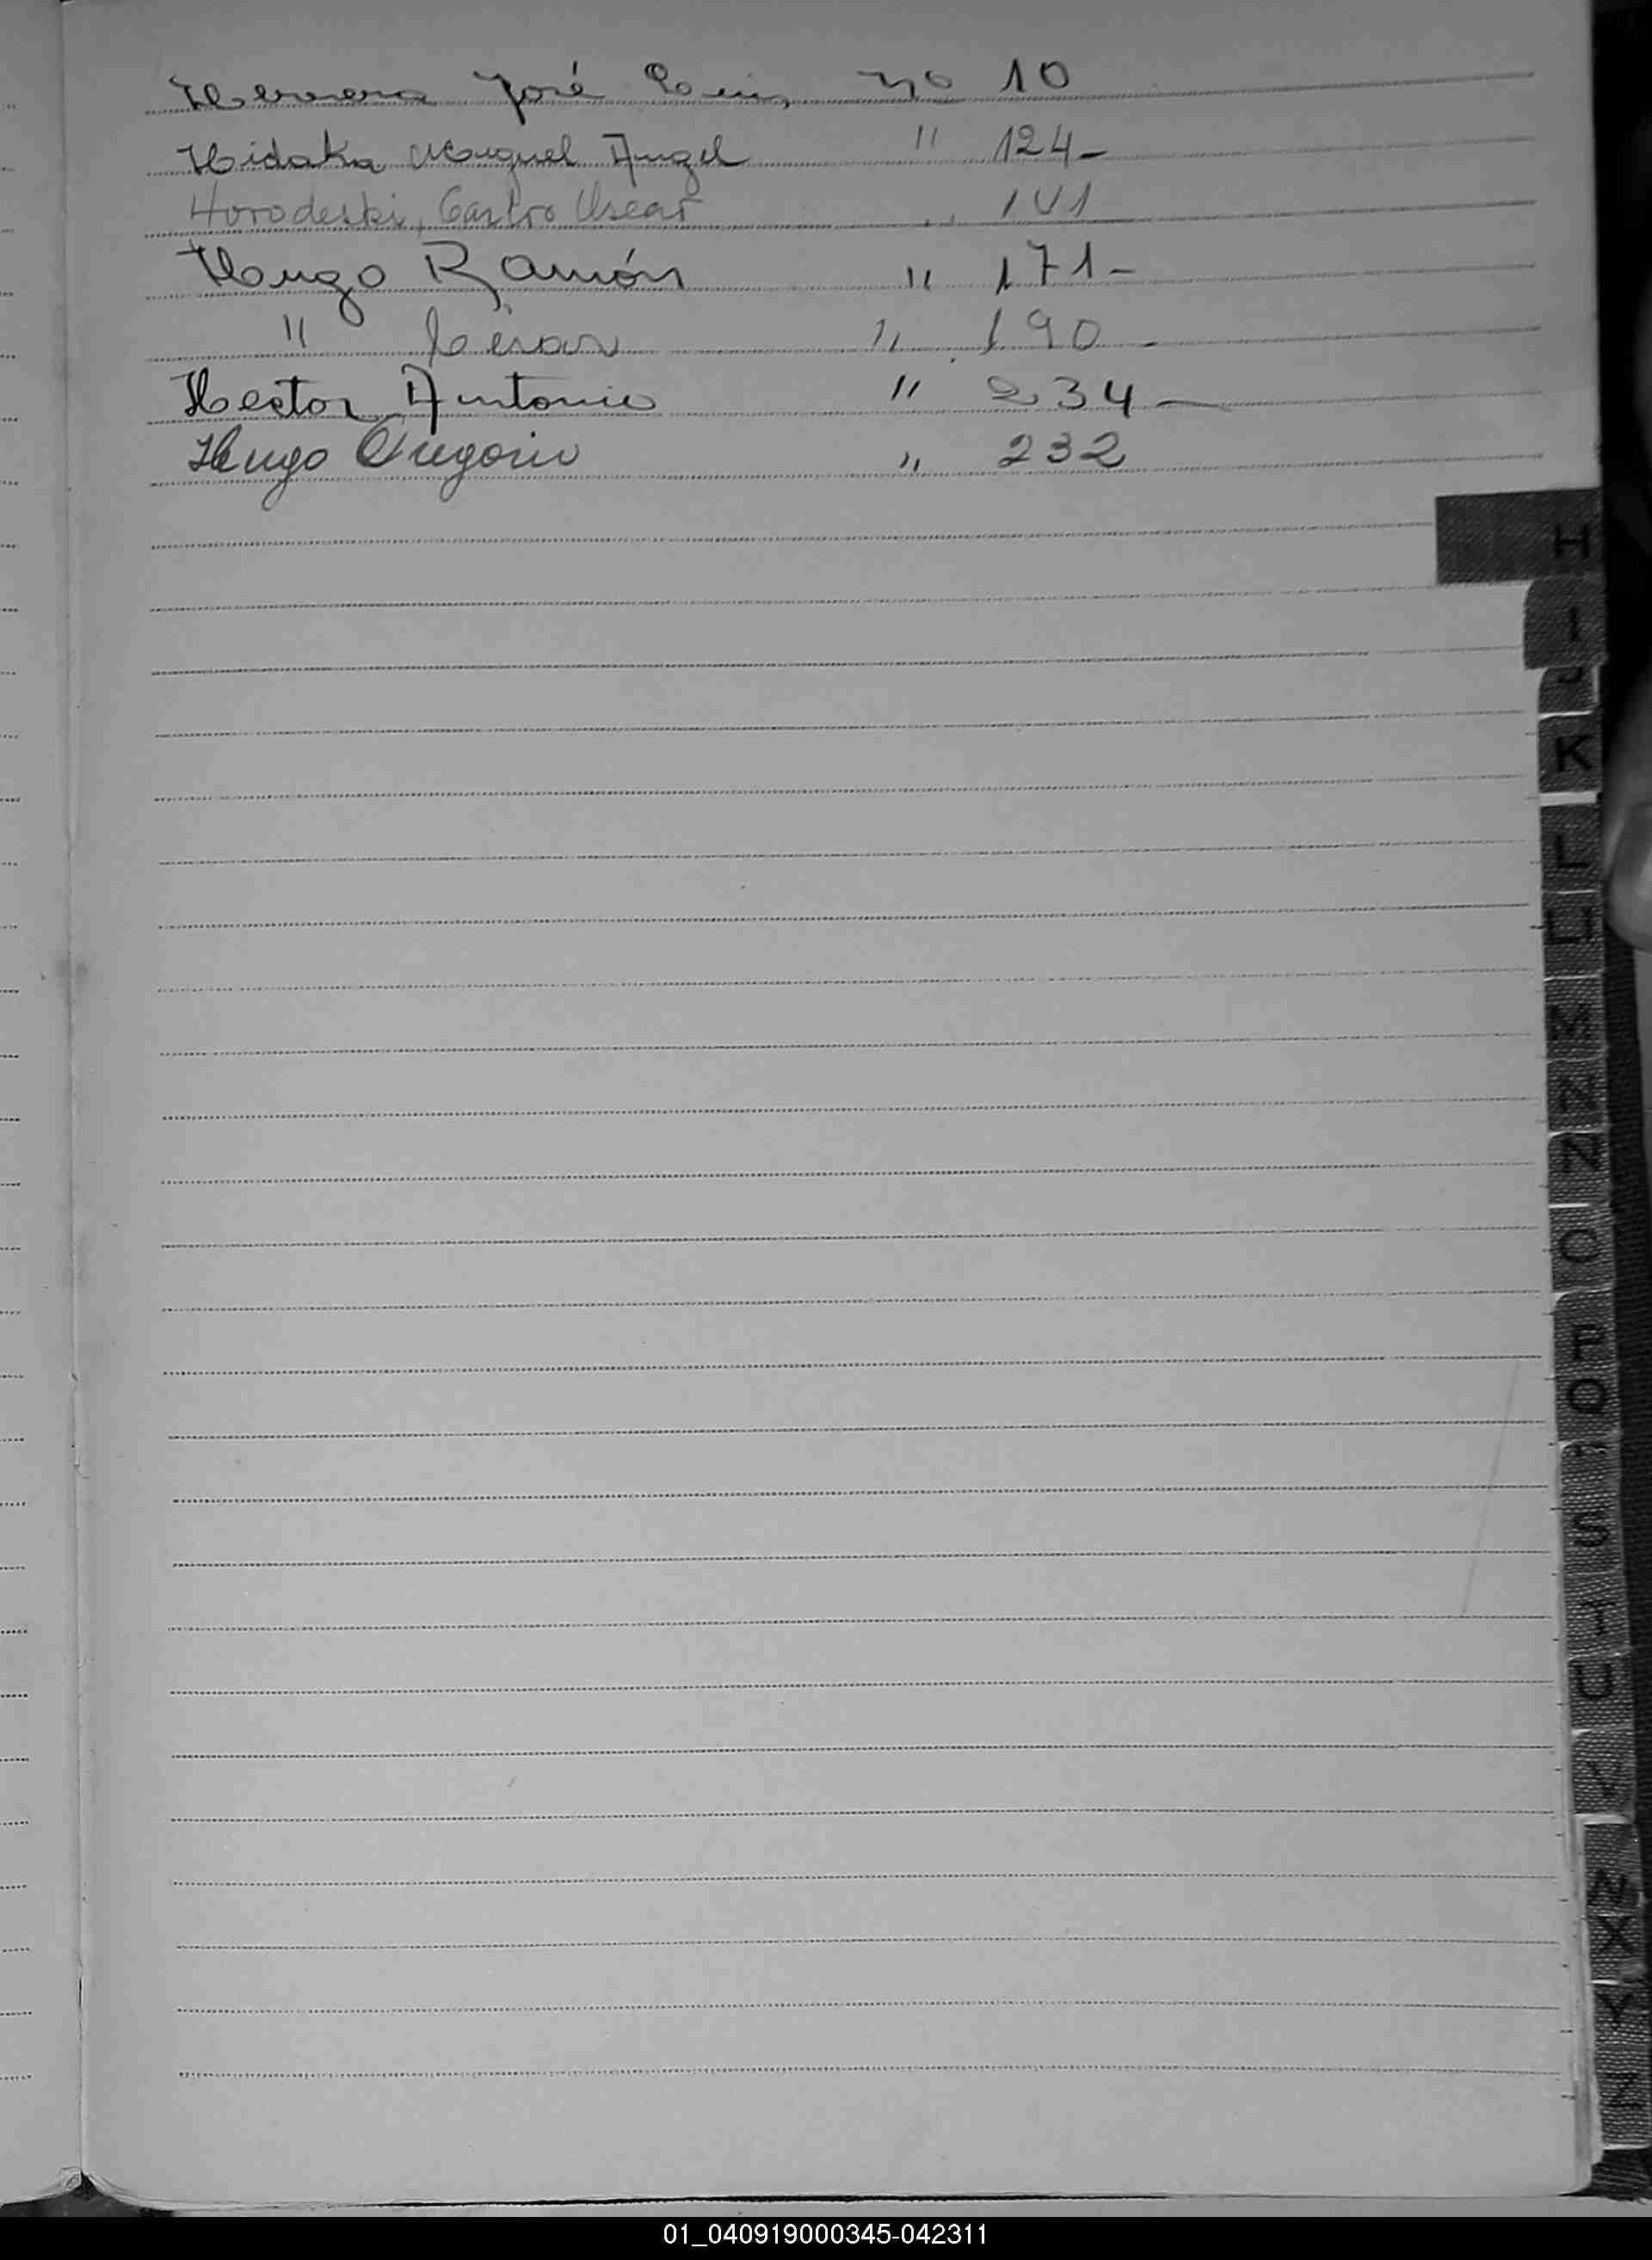 Herrera José Luis, No 10
Hidaka Miguel Angel " 124-
Horodeski, Castro Oscar " 141
Hugo Ramón " 171-
" César " 190-
Hector Antonio " 234-
Hugo Gregorio " 232
H
I
J
K
L
LL
M
N
Ñ
O
P
Q
R
S
T
U
V
W
X
Y
Z
01_040919000345-042311